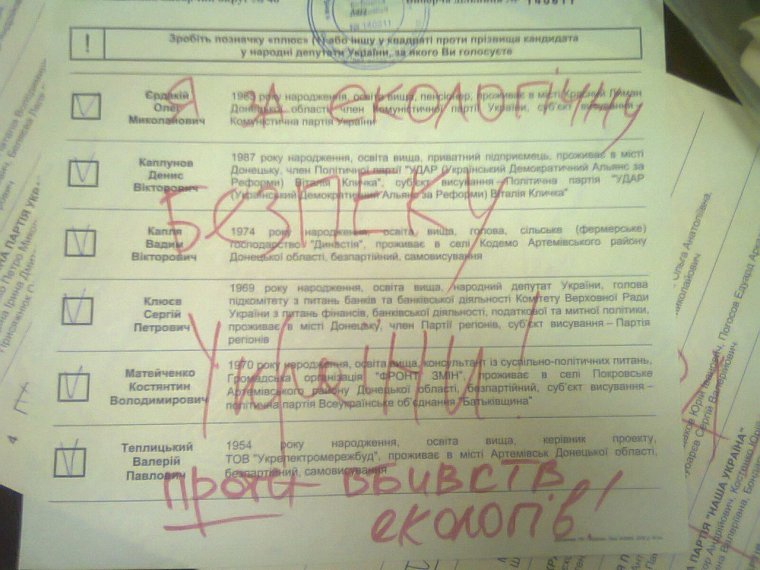 № 140811
! Зробіть позначку «плюс» (+) або іншу у квадраті проти прізвища кандидата
у народні депутати України, за якого Ви голосуєте
Єрдакій
Олег
Миколайович
1963 року народження, освіта вища, пенсіонер, проживає в місті Красний Лиман
Донецької області, член Комуністичної партії України, суб'єкт висування –
Комуністична партія України
Я ЗА екологічну
Каплунов
Денис
Вікторович
1987 року народження, освіта вища, приватний підприємець, проживає в місті
Донецьку, член Політичної партії "УДАР (Український Демократичний Альянс за
Реформи) Віталія Кличка", суб'єкт висування – Політична партія "УДАР
(Український Демократичний Альянс за Реформи) Віталія Кличка"
Безпеку
Капля
Вадим
Вікторович
1974 року народження, освіта вища, голова, сільське (фермерське)
господарство "Династія", проживає в селі Кодемо Артемівського району
Донецької області, безпартійний, самовисування
Клюєв
Сергій
Петрович
1969 року народження, освіта вища, народний депутат України, голова
підкомітету з питань банків та банківської діяльності Комітету Верховної Ради
України з питань фінансів, банківської діяльності, податкової та митної політики,
проживає в місті Донецьку, член Партії регіонів, суб'єкт висування – Партія
регіонів
України!
Матейченко
Костянтин
Володимирович
1970 року народження, освіта вища, консультант із суспільно-політичних питань,
Громадська організація "ФРОНТ ЗМІН", проживає в селі Покровське
Артемівського району Донецької області, безпартійний, суб'єкт висування –
політична партія Всеукраїнське об'єднання "Батьківщина"
Теплицький
Валерій
Павлович
1954 року народження, освіта вища, керівник проекту,
ТОВ "Укрелектромережбуд", проживає в місті Артемівськ Донецької області,
безпартійний, самовисування
проти вбивств
екологів!
4
ПАРТІЯ "НАША УКРАЇНА"